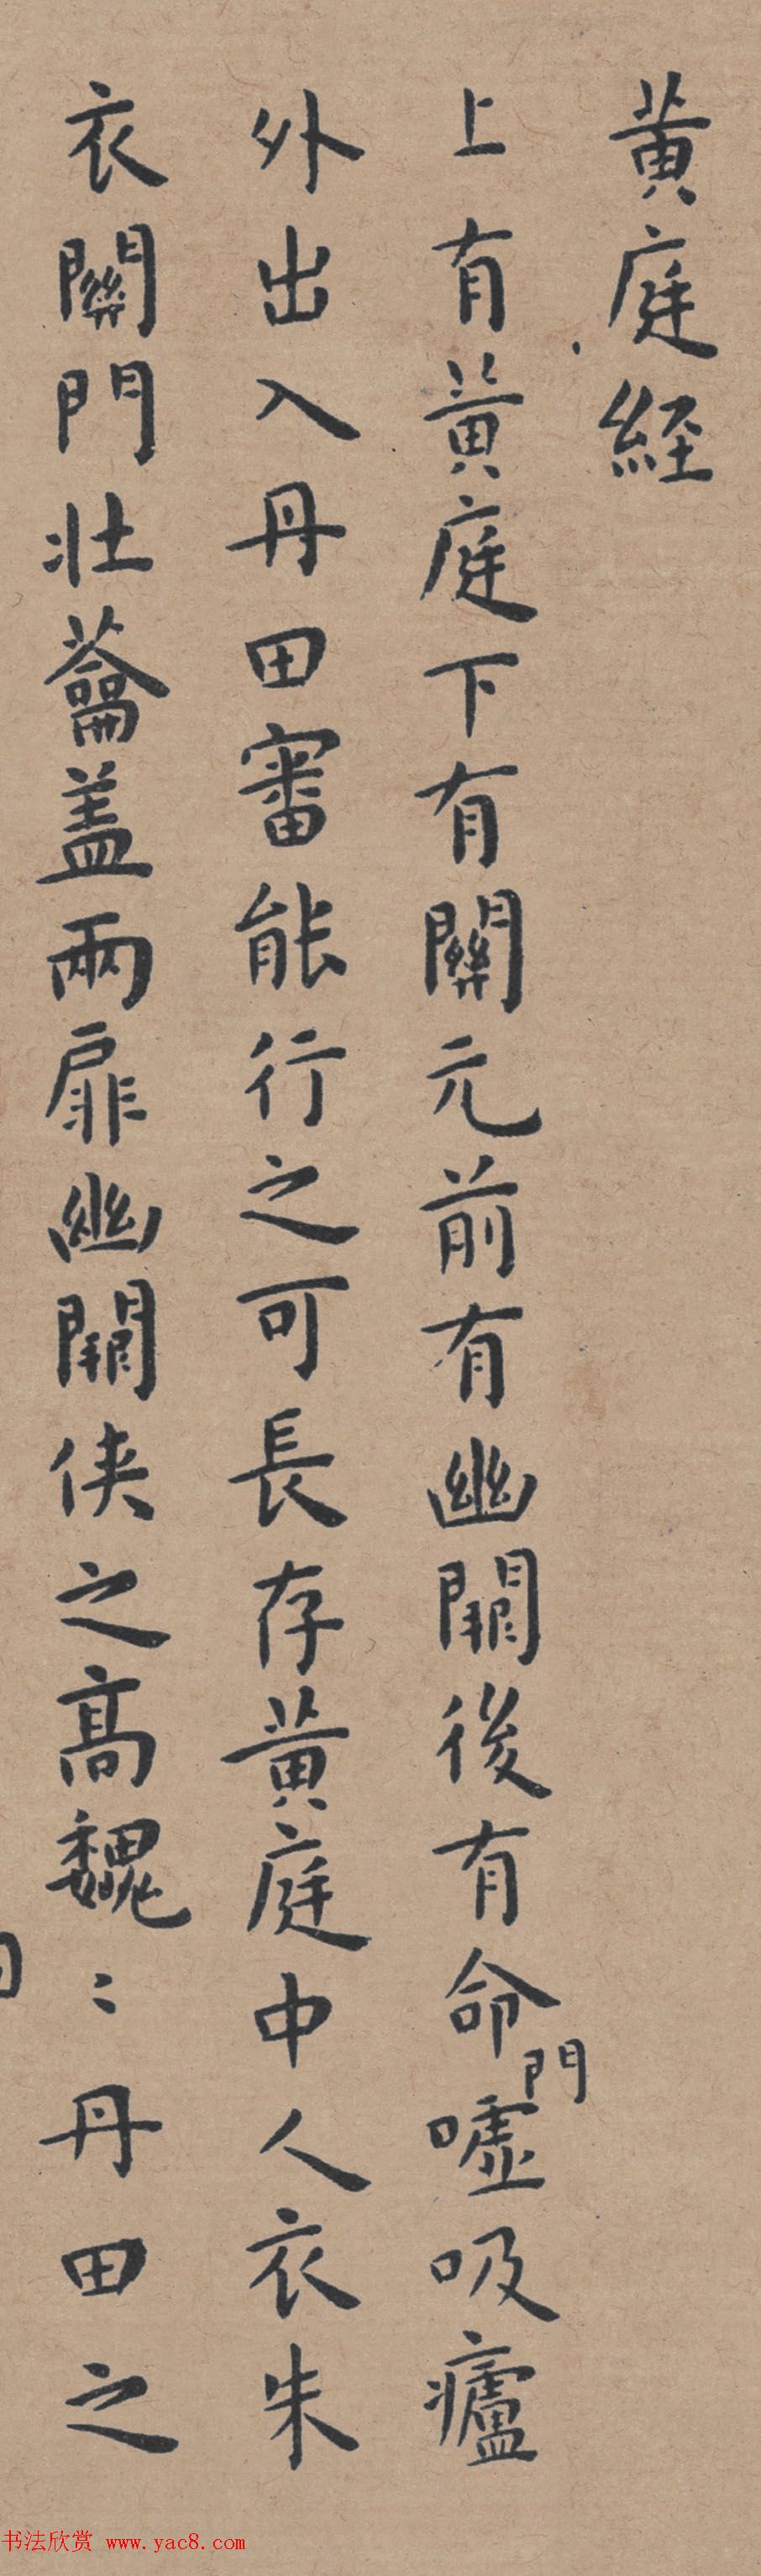 黄庭経
上有黄庭下有關元前有幽闕後有命門噓吸廬
外出入丹田審能行之可長存黄庭中人衣朱
衣關門壯蘥盖兩扉幽闕侠之高魏〻丹田之
书法欣赏 www.yac8.com